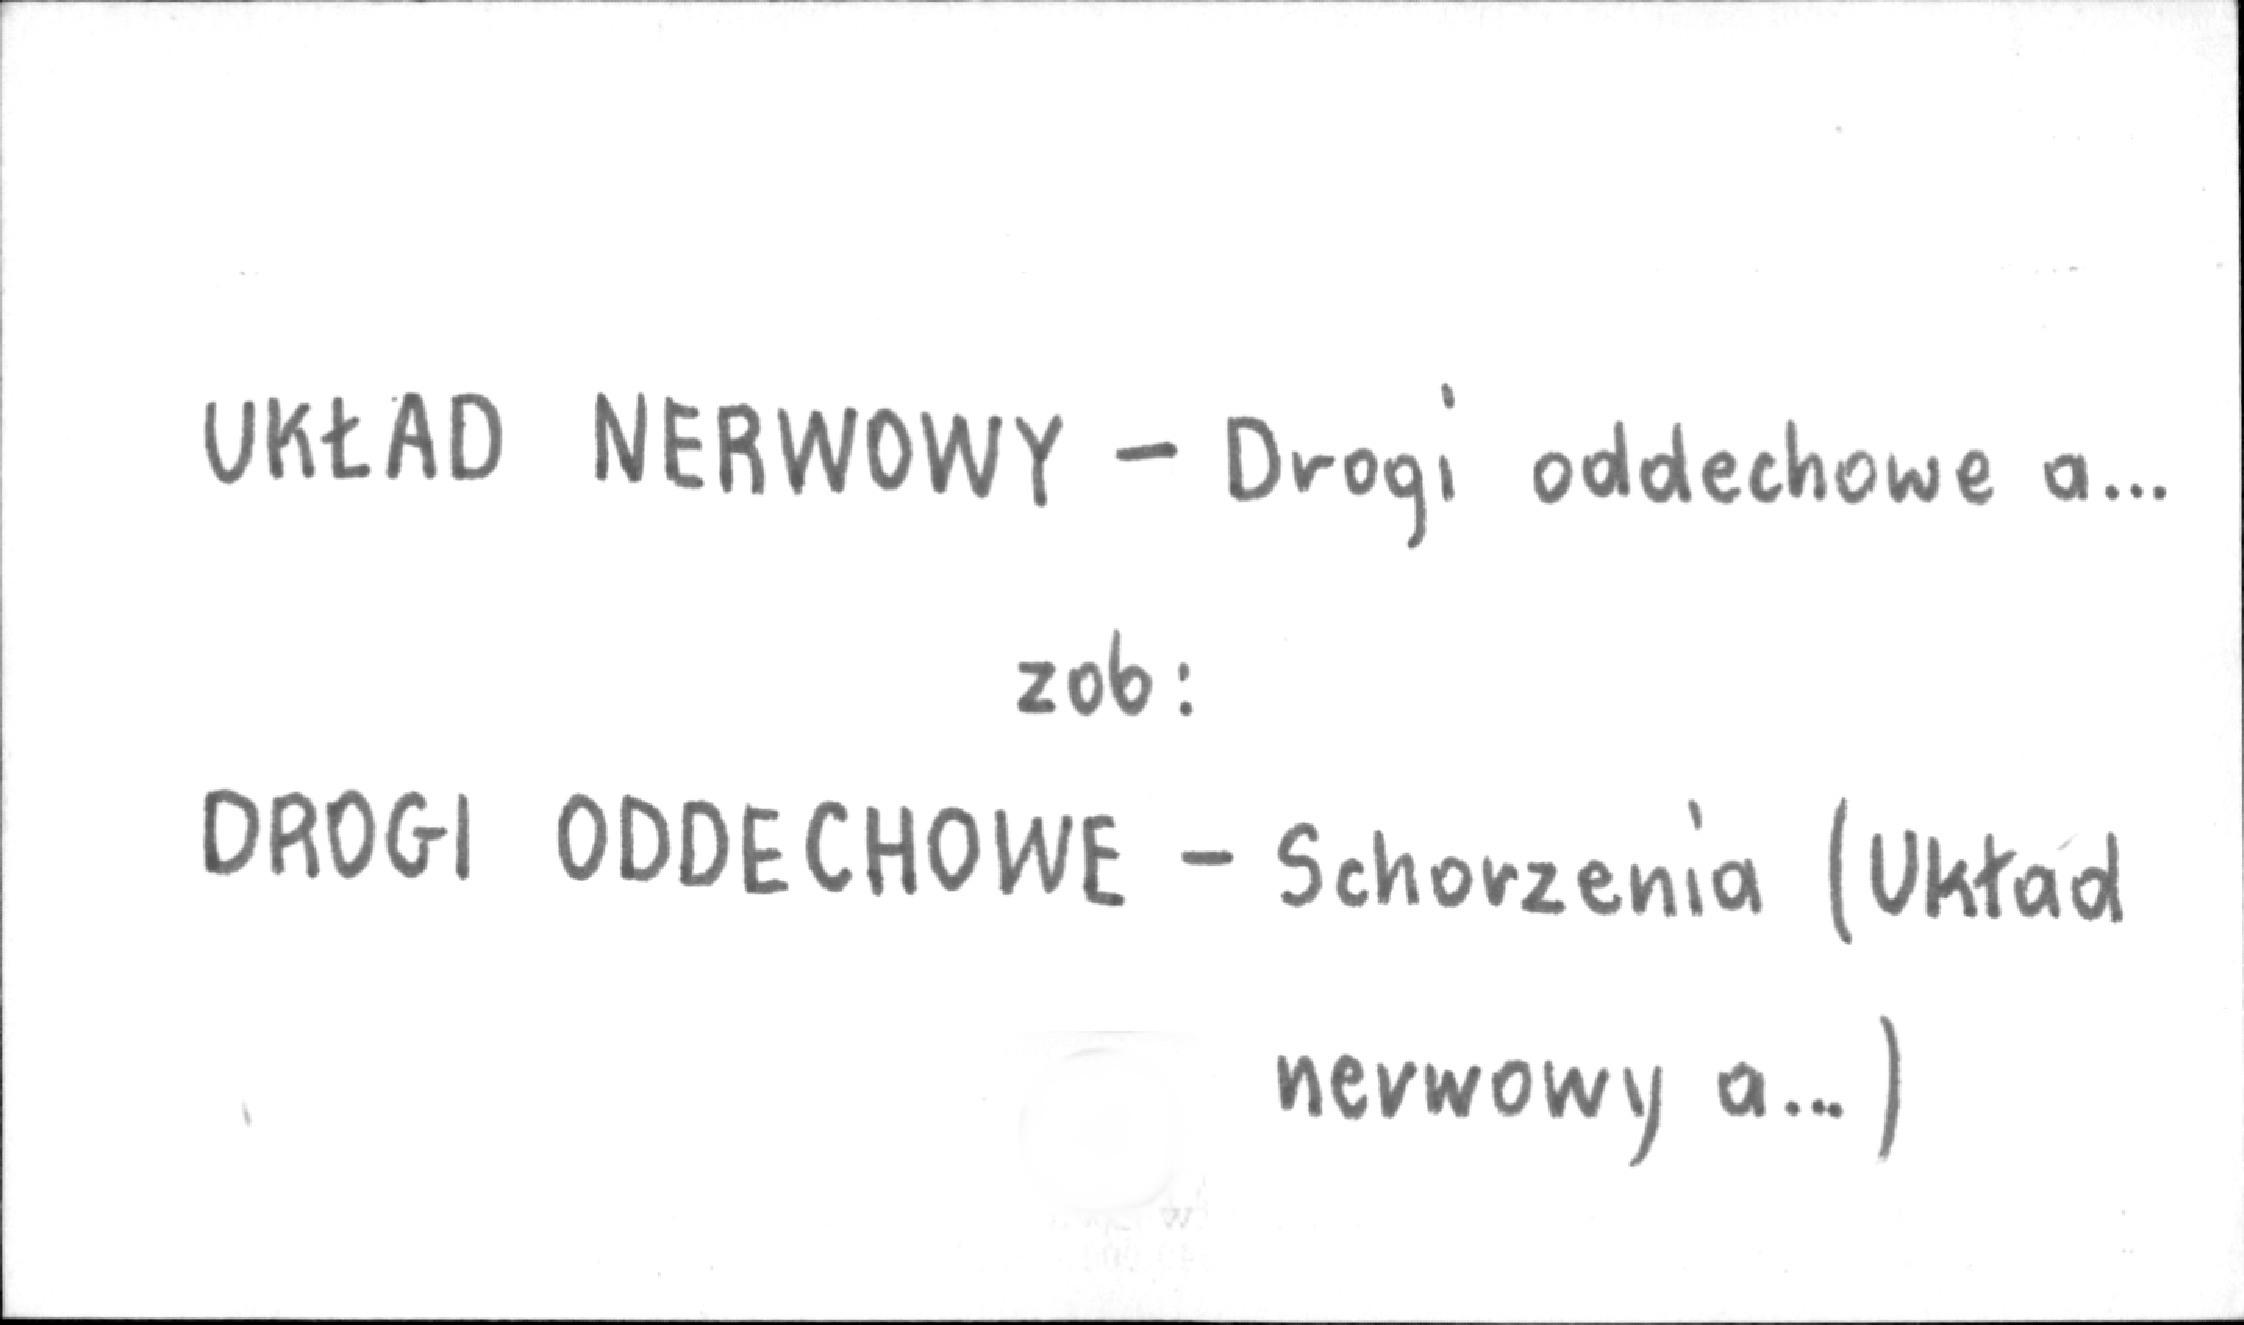 UKŁAD NERWOWY - Drogi oddechowe a...
zob:
DROGI ODDECHOWE - Schorzenia (Układ
nerwowy a...)